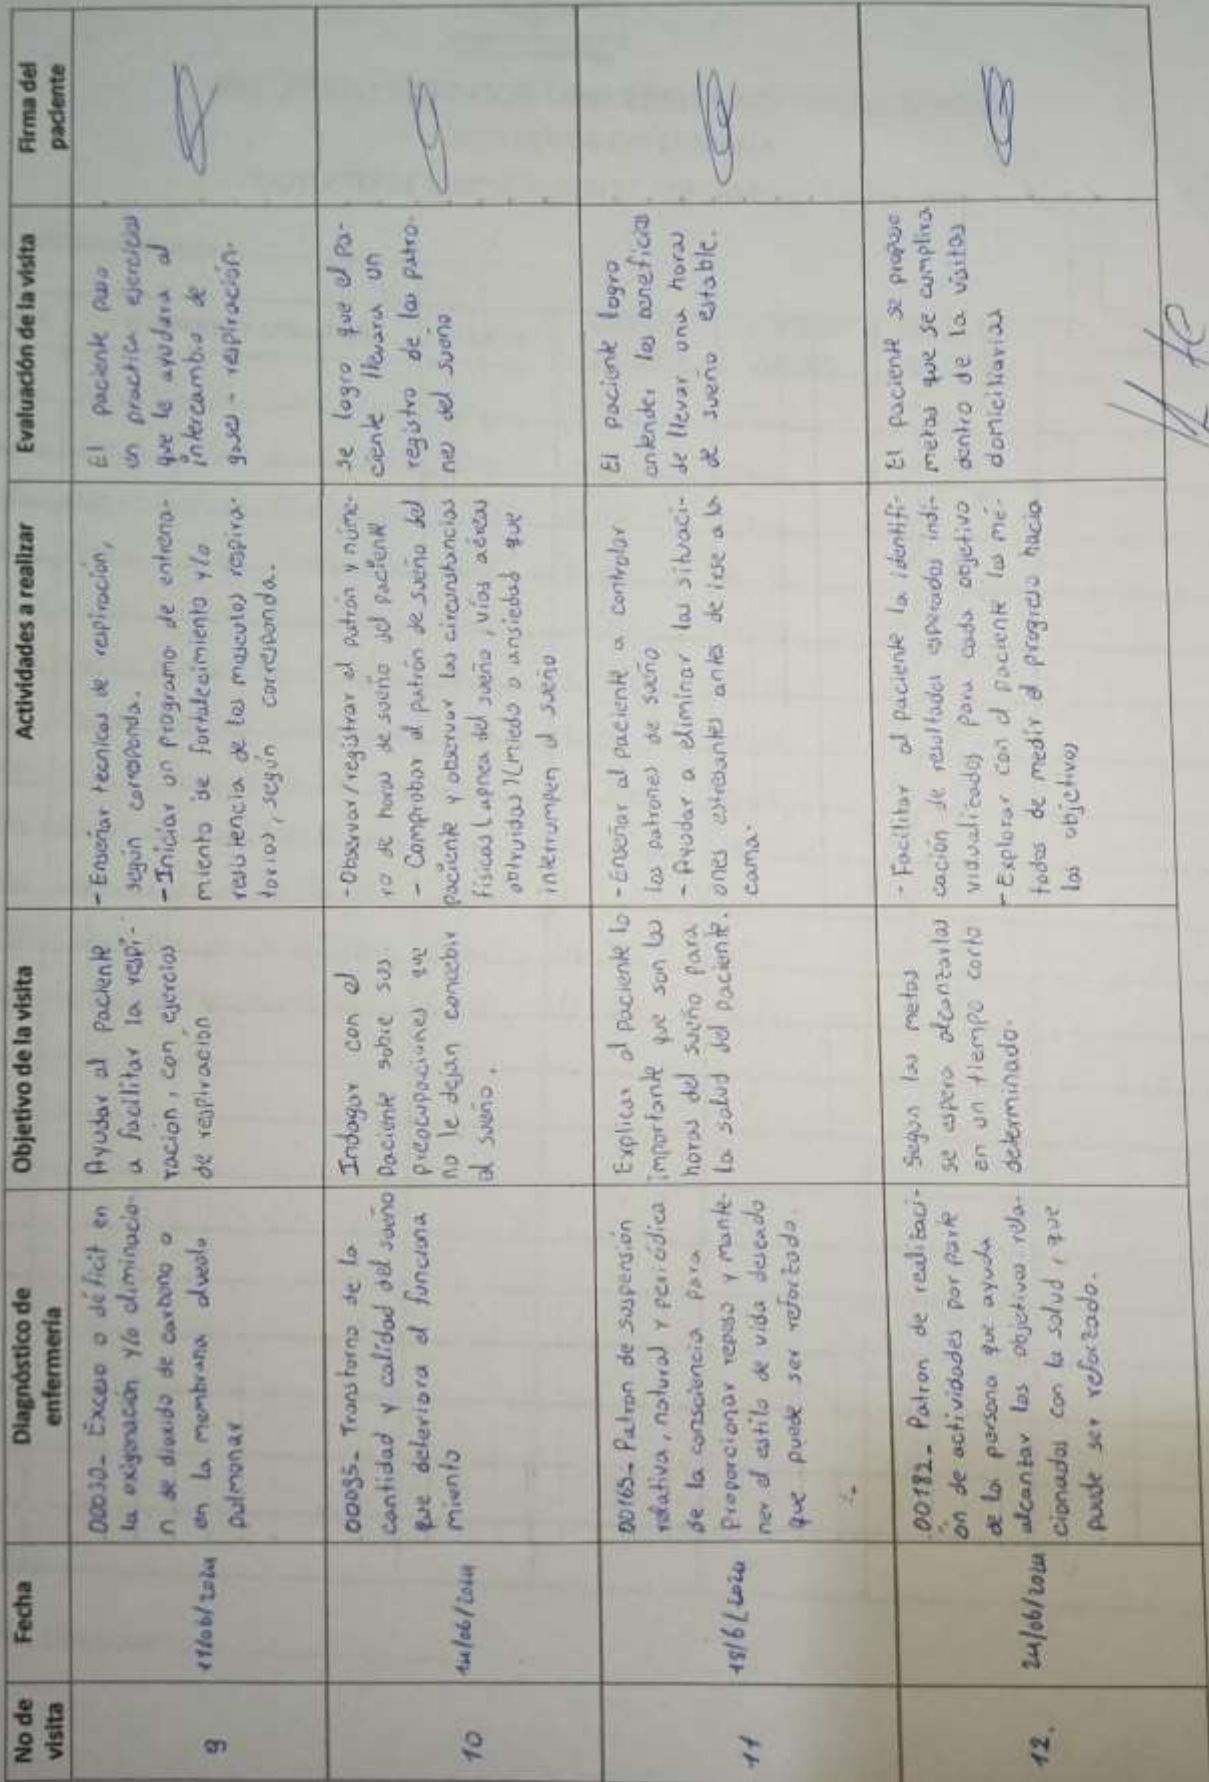 No de visita
Fecha
Diagnóstico de enfermería
Objetivo de la visita
Actividades a realizar
Evaluación de la visita
Firma del paciente
9
11/06/2024
00030_ Exceso o déficit en
la oxigenación y/o eliminacio-
n de dioxido de carbono o
en la membrana alveolo
pulmonar
Ayudar al paciente
a facilitar la respi-
racion, con ejercicios
de respiración
- Enseñar tecnicas de respiración,
según corresponda.
- Iniciar un programa de entrena-
miento de fortalecimiento y/o
resistencia de los musculos respira-
torios, según corresponda.
El paciente puso
en practica ejercicios
que le ayudara al
intercambio de
gases - respiración.
10
14/06/2024
00095_ Transtorno de la
cantidad y calidad del sueño
que deteriora el funciona
miento
Indagar con el
paciente sobre sus
preocupaciones que
no le dejan concebir
el sueño.
- Observar/registrar el patrón y núme-
ro de horas de sueño del paciente
- Comprobar el patrón de sueño del
paciente y observar las circunstancias
físicas (apnea del sueño, vías aéreas
obtruidas) (miedo o ansiedad que
interrumpen el sueño
se logro que el pa-
ciente llevara un
registro de los patro-
nes del sueño
11
18/6/2024
00165_ Patron de suspensión
relativa, natural y periódica
de la consciencia para
proporcionar reposo y mante-
ner el estilo de vida deseado
que puede ser reforzado.
Explicar al paciente lo
importante que son las
horas del sueño para
la salud del paciente.
- Enseñar al paciente a controlar
los patrones de sueño
- Ayudar a eliminar las situaci-
ones estresantes antes de irse a la
cama.
El paciente logro
entender los beneficios
de llevar una horas
de sueño estable.
12.
24/06/2024
00182_ Patron de realizaci-
ón de actividades por parte
de la persona que ayuda
alcanzar los objetivos rela-
cionados con la salud, que
puede ser reforzado.
Segun las metas
se espera alcanzarlas
en un tiempo corto
determinado.
- Facilitar al paciente la identifi-
cación de resultados esperados indi-
vidualizados para cada objetivo
- Explorar con el paciente los mé-
todos de medir el progreso hacia
los objetivos
El paciente se propuso
metas que se cumplira
dentro de la visitas
domiciliarias